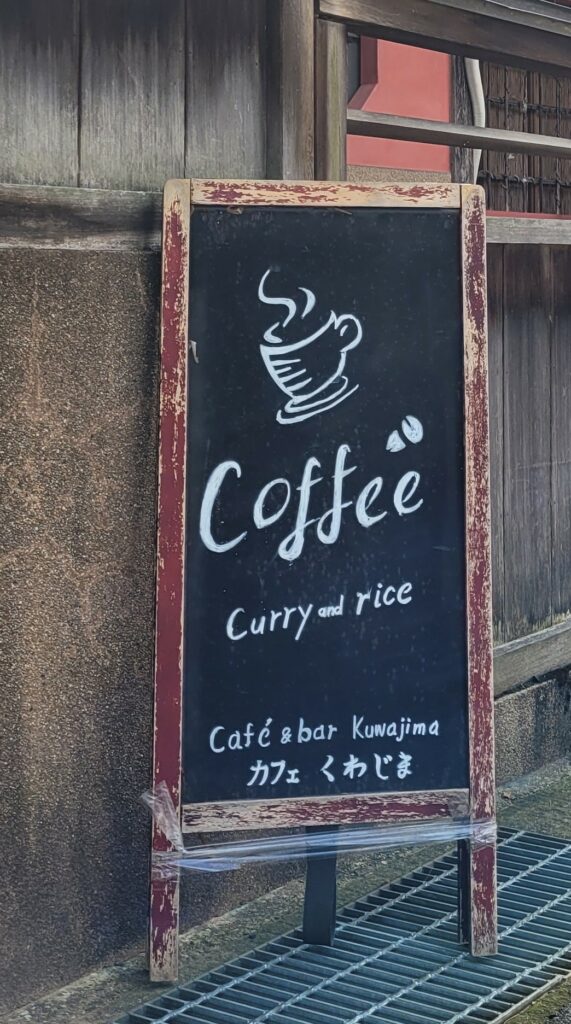 Coffee
Curry and rice
Café & bar Kuwajima
カフェ くわじま